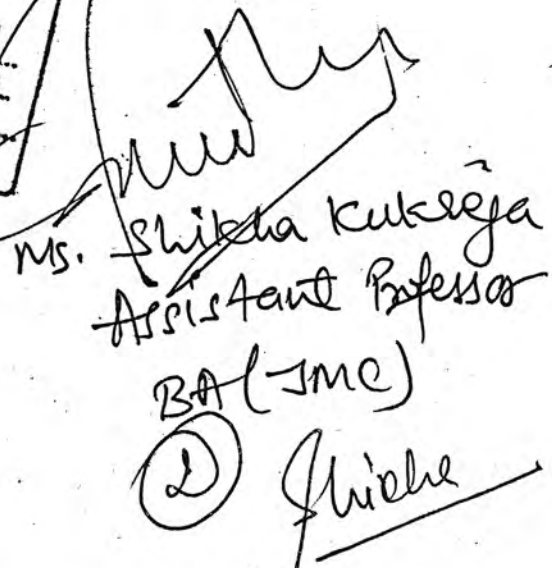 Ms. Shikha Kukreja
Assistant Professor
BA(JMC)
2 Shikha